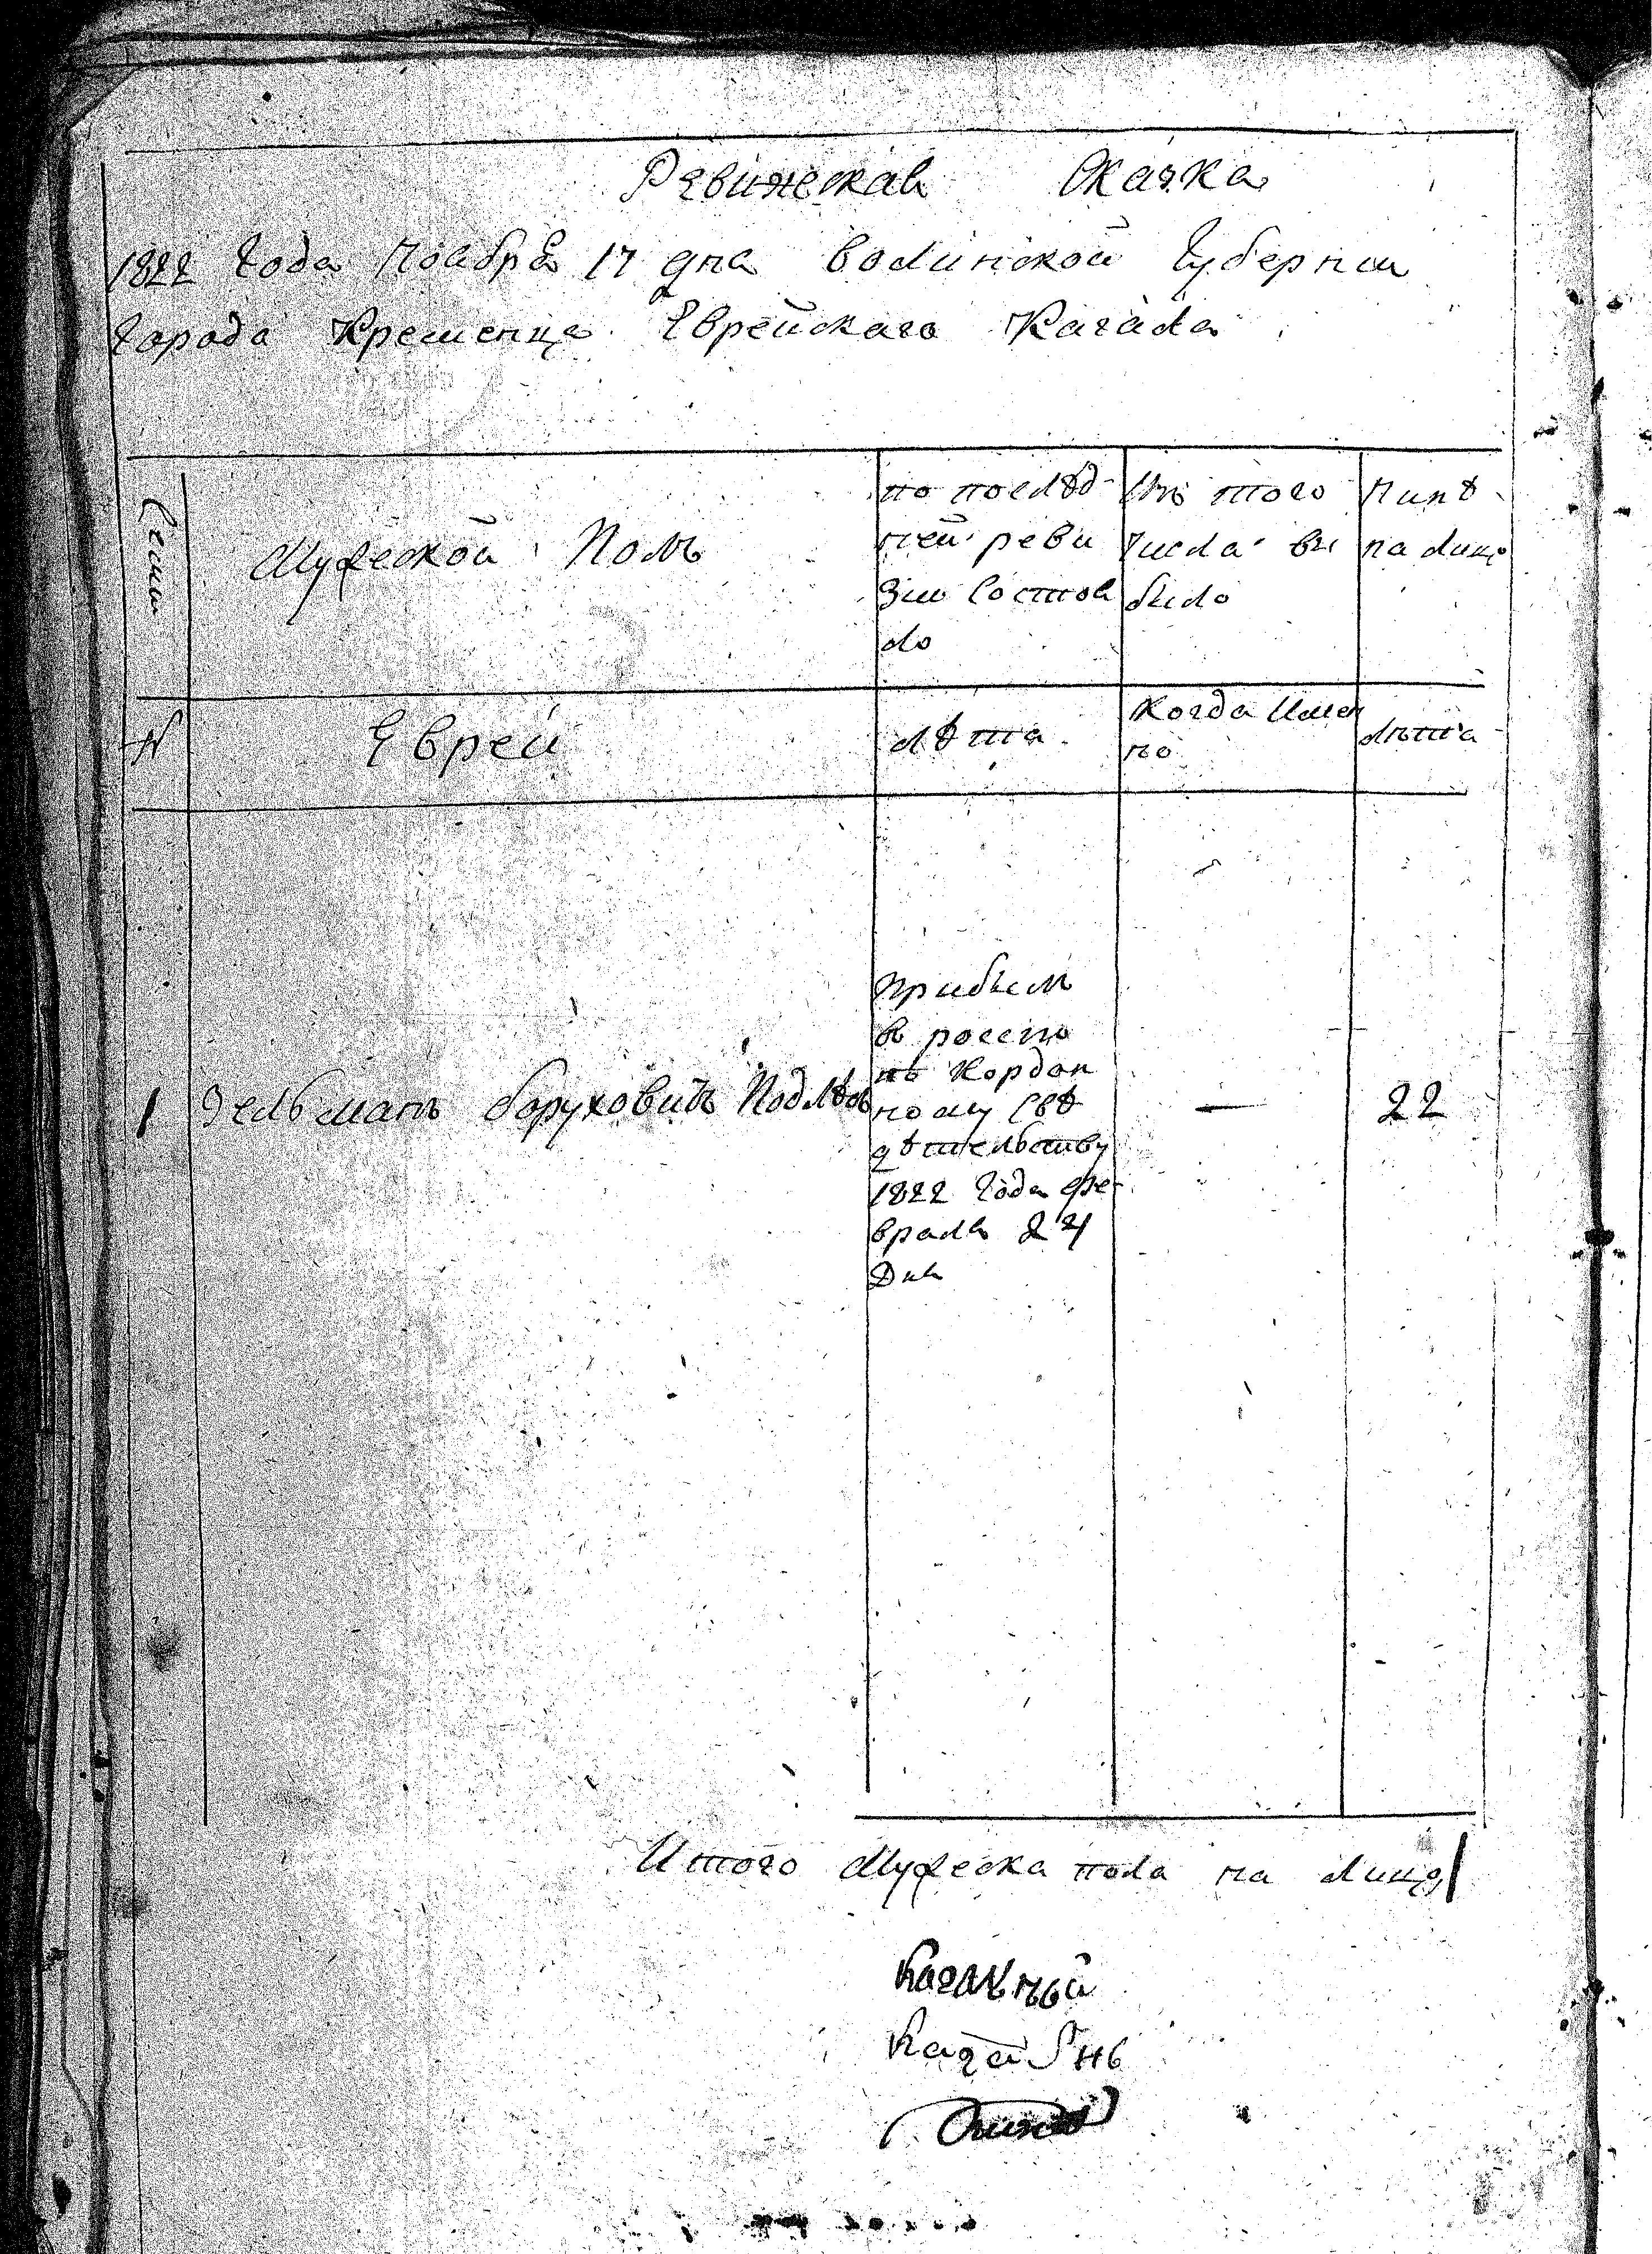 Ревижскаа Скаска
1822 Года Ноабра 17 дна Волинской Губернии
Города Кременца Еврейскаго Кагала
Семи
Мужеской Полъ
по послѣд-
ней реви
зии Состоа
ло
Изъ того
Числа вы
было
Нинѣ
на лицо
N
Еврей
лѣта
Когда Имен
но
лѣта
1 Зельманъ Боруховичъ Подлѣс
прибылъ
въ росию
по Кордон
ному Свѣ
дѣтельству
1822 Года фе-
врала 24
Дна
—
22
Итого Мужеска пола на лицо 1
Кагальный